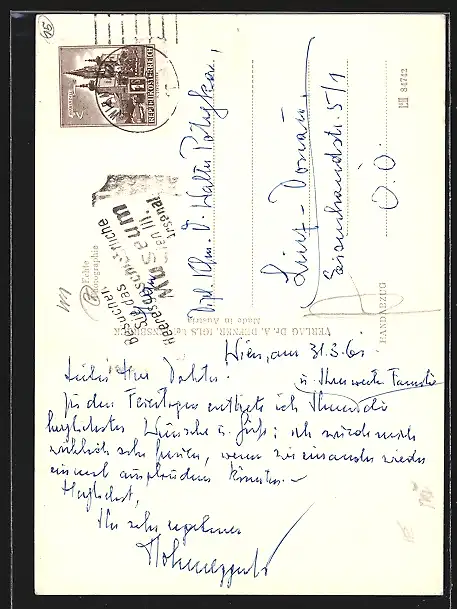 Wien, am 31.3.61
Lieber Herr Doktor.
u. Ihrer werten Familie
Zu den Feiertagen entbiete ich Ihnen die
herzlichsten Wünsche u. Grüße; ich würde mich
wirklich sehr freuen, wenn wir einander wieder
einmal ausplaudern könnten. –
Herzlichst,
Ihr sehr ergebener
Dipl. Kfm. D. Walter
Linz - Donau,
5/1
O.Ö.
REPUBLIK ÖSTERREICH
WIEN
Besuchen
Sie das
Heeresgeschichtliche
Museum
Wien III.
Arsenal
Echte
Photographie
VERLAG DR. A. DEFNER, IGLS bei INNSBRUCK
Made in Austria
HANDABZUG
84742